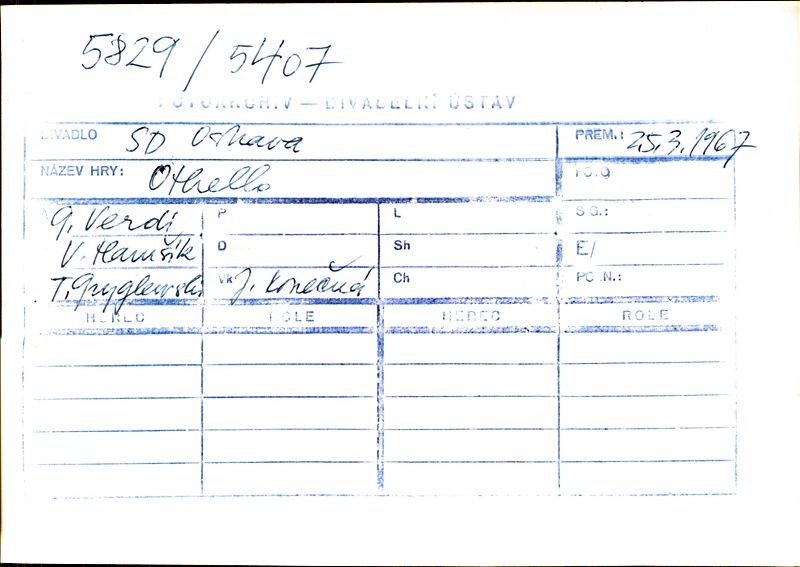 5829 / 5407
FOTOARCHIV — DIVADELNÍ ÚSTAV
DIVADLO SD Ostrava PREM.: 25.3.1967
NÁZEV HRY: Othello
G. Verdi P L SG.:
V. Hamšík D Sh E/
T. Gryglewski Vk J. Konečná Ch PO.N.:
HEREC ROLE HEREC ROLE